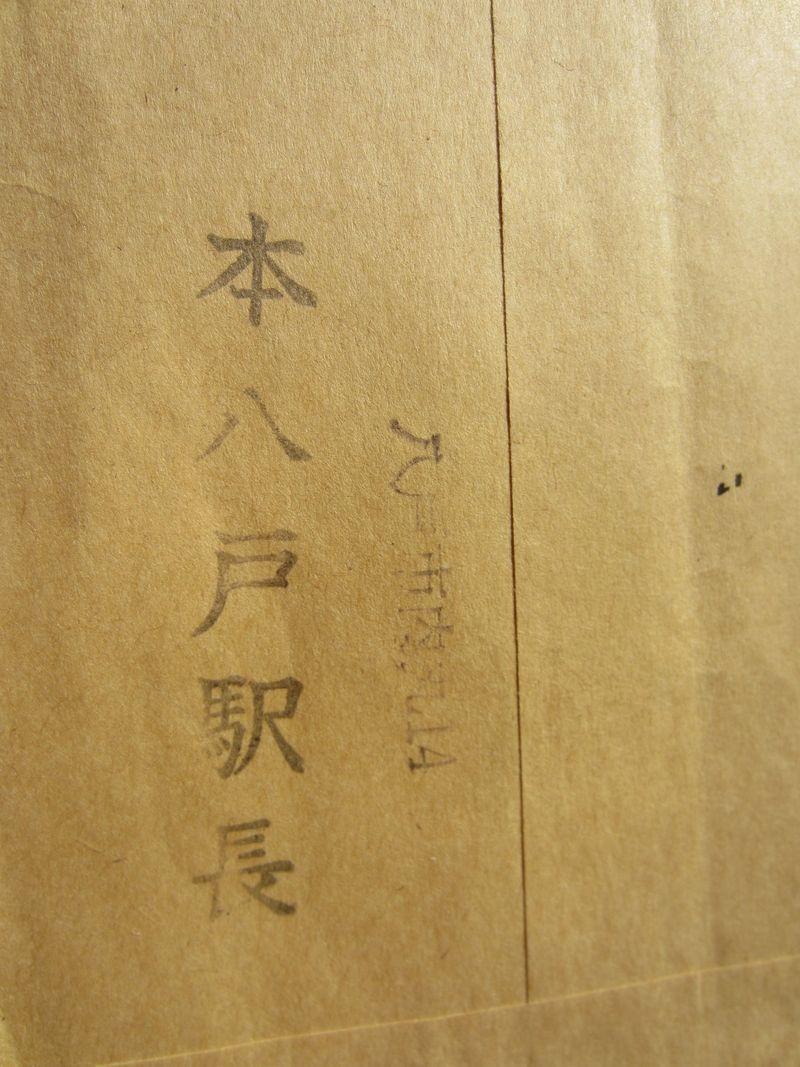 八戸市内丸14
本八戸駅長